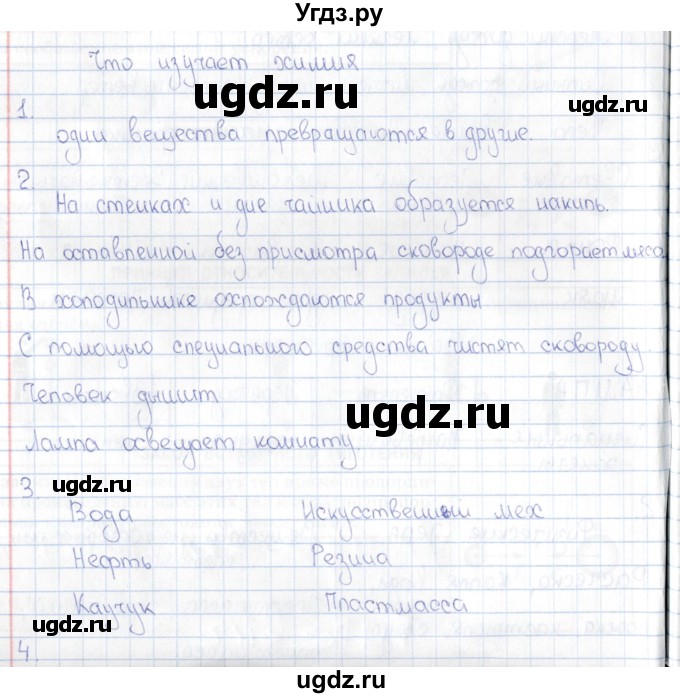 Угдз.ру
Что изучает химия
ugdz.ru
ugdz.ru
1.
одни вещества превращаются в другие.
2
На стенках и дне чайника образуется накипь.
На оставленной без присмотра сковороде подгорает мясо
В холодильнике охлождаются продукты
С помощью специального средства чистят сковороду
Человек дышит
ugdz.ru
Лампа освещает комнату
3 ugdz.ru
Вода Искусственный мех
Нефть Резина
Каучук Пластмасса
ugdz.ru
4.
ugdz.ru
ugdz.ru